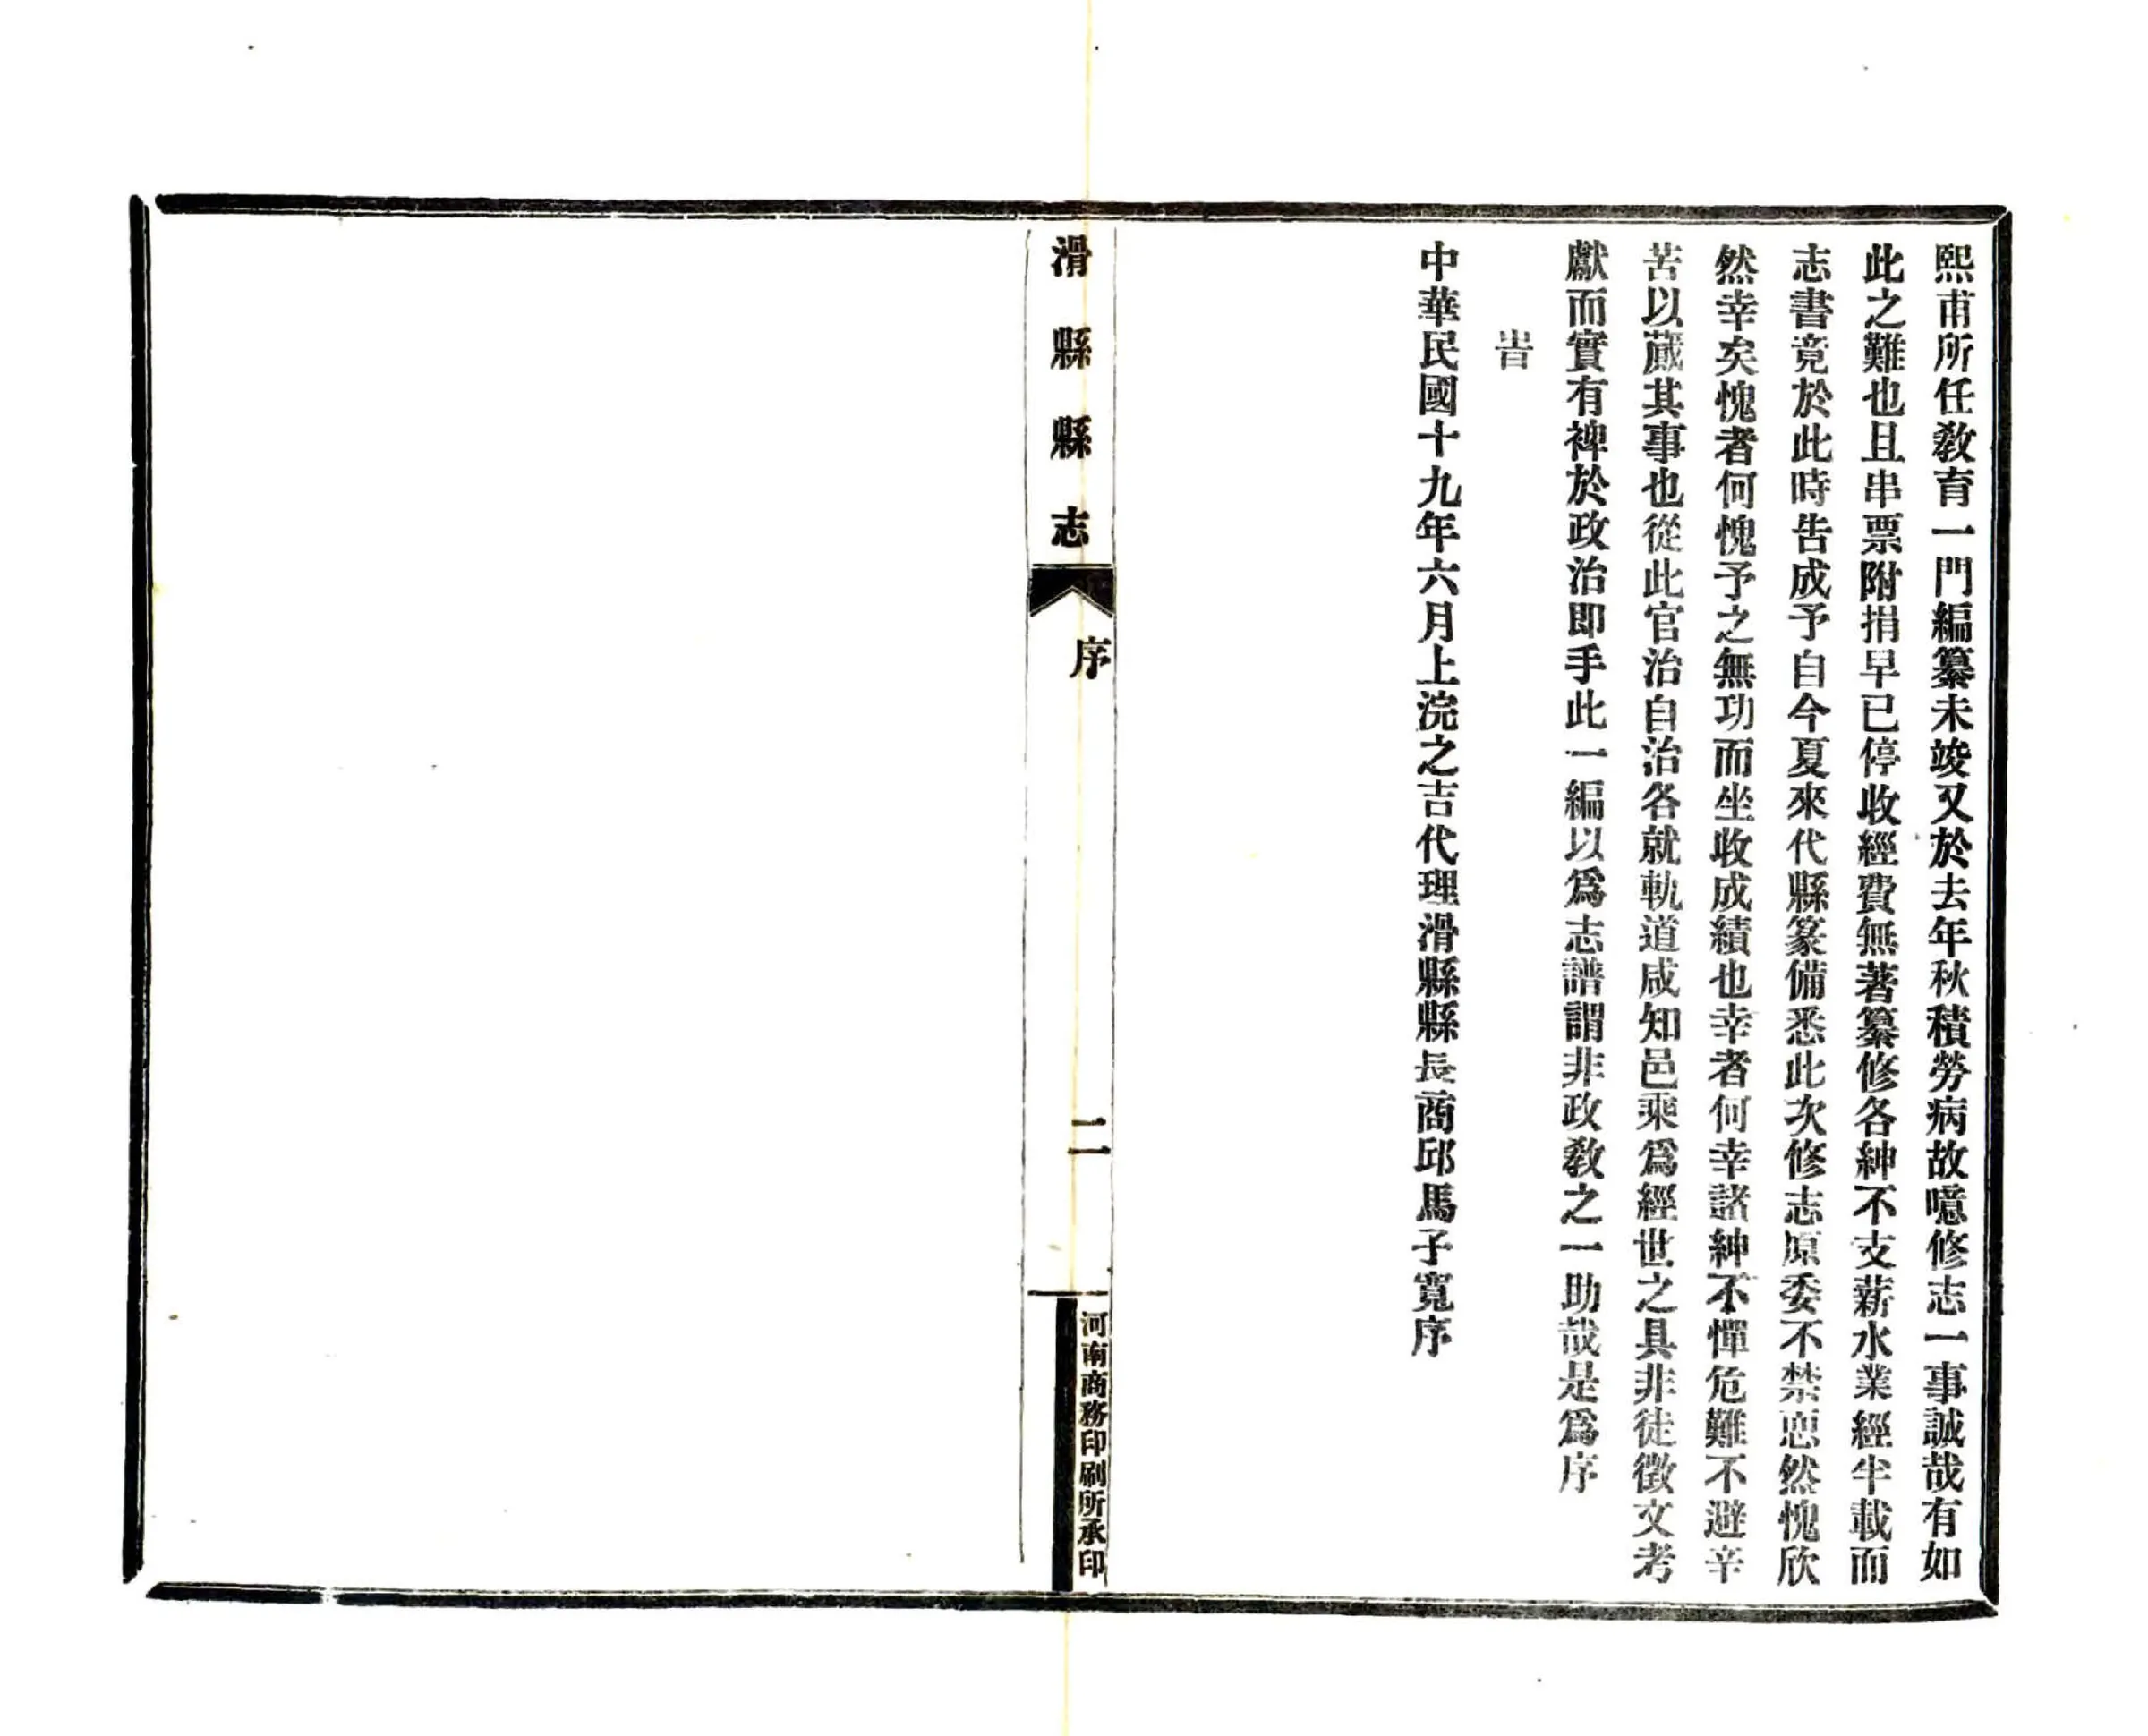 熙甫所任敎育一門編纂未竣又於去年秋積勞病故噫修志一事誠哉有如
此之難也且串票附捐早已停收經費無著纂修各紳不支薪水業經半載而
志書竟於此時告成予自今夏來代縣篆備悉此次修志原委不禁恧然愧欣
然幸矣愧者何愧予之無功而坐收成績也幸者何幸諸紳不憚危難不避辛
苦以蕆其事也從此官治自治各就軌道咸知邑乘爲經世之具非徒徵文考
獻而實有裨於政治即手此一編以爲志譜謂非政敎之一助哉是爲序
旹
中華民國十九年六月上浣之吉代理滑縣縣長商邱馬子寬序
滑縣縣志
序
二
河南商務印刷所承印